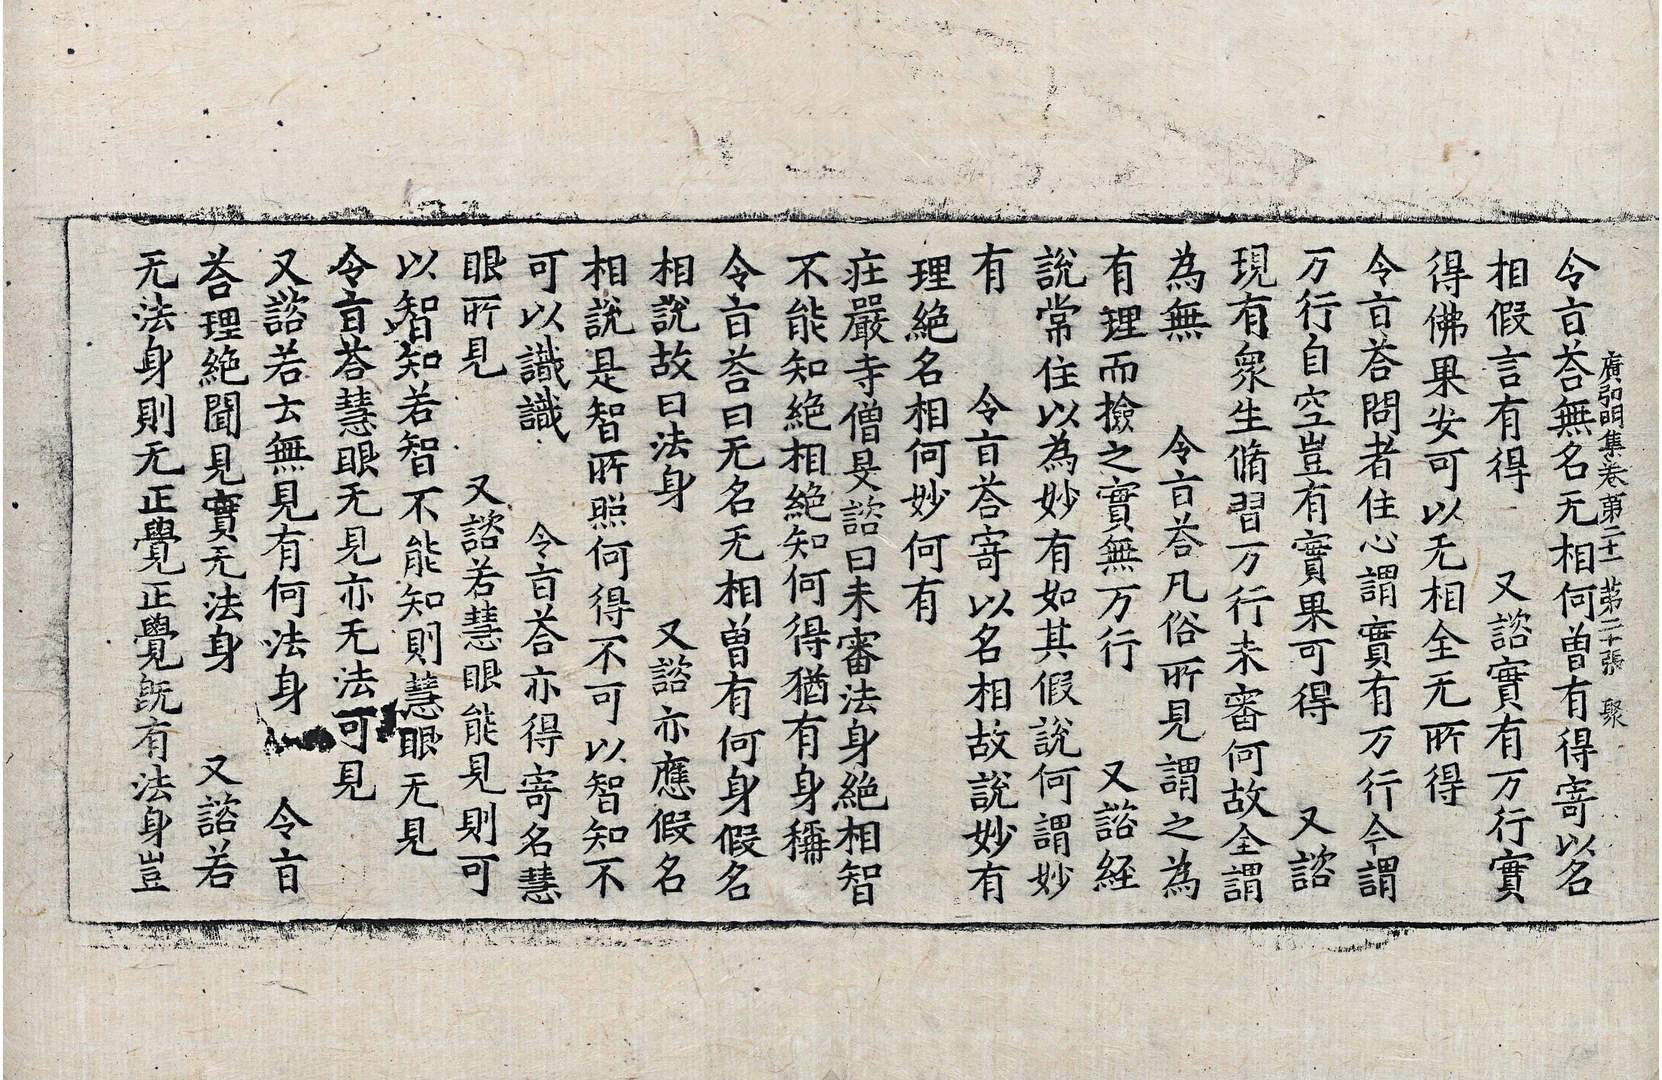 廣弘明集卷第二十一 第二十張 聚
令旨荅無名无相何曽有得寄以名
相假言有得 又諮實有万行實
得佛果安可以无相全无所得
令旨荅問者住心謂實有万行今謂
万行自空豈有實果可得 又諮
現有衆生脩習万行未審何故全謂
為無 令旨荅凡俗所見謂之為
有理而撿之實無万行 又諮經
說常住以為妙有如其假說何謂妙
有 令旨荅寄以名相故說妙有
理絶名相何妙何有
莊嚴寺僧旻諮曰未審法身絶相智
不能知絶相絶知何得猶有身稱
令旨荅曰无名无相曽有何身假名
相說故曰法身 又諮亦應假名
相說是智所照何得不可以智知不
可以識識 令旨荅亦得寄名慧
眼所見 又諮若慧眼能見則可
以智知若智不能知則慧眼无見
令旨荅慧眼无見亦无法可見
又諮若云無見有何法身 令旨
荅理絶聞見實无法身 又諮若
无法身則无正覺正覺既有法身豈